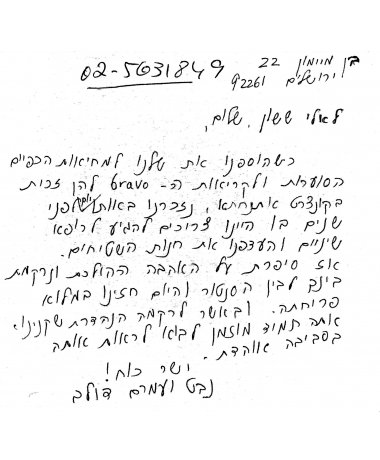 בן מיימון 22
ירושלים 92261
02-5631849
לאלי ששון, שלום,
כשהוספנו את שלנו למחיאות הכפיים
הסוערות ולקריאות ה- bravo להן זכית
בקונצרט אותנתא, נזכרנו באותו יום שלפני
שנים בו היינו צריכים להגיע לרופא
שיניים והעדפנו את חנות השטיחים.
אז סיפרת על האהבה ההולכת ונרקמת
בינך לבין הסנטור והיום חזינו במלוא
פריחתה. ובאשר לרקמה הנהדרת שקנינו,
אתה תמיד מוזמן לבוא לראות אותה
בסביבה אוהדת.
ישר כוח!
נבט ועמרם דולב